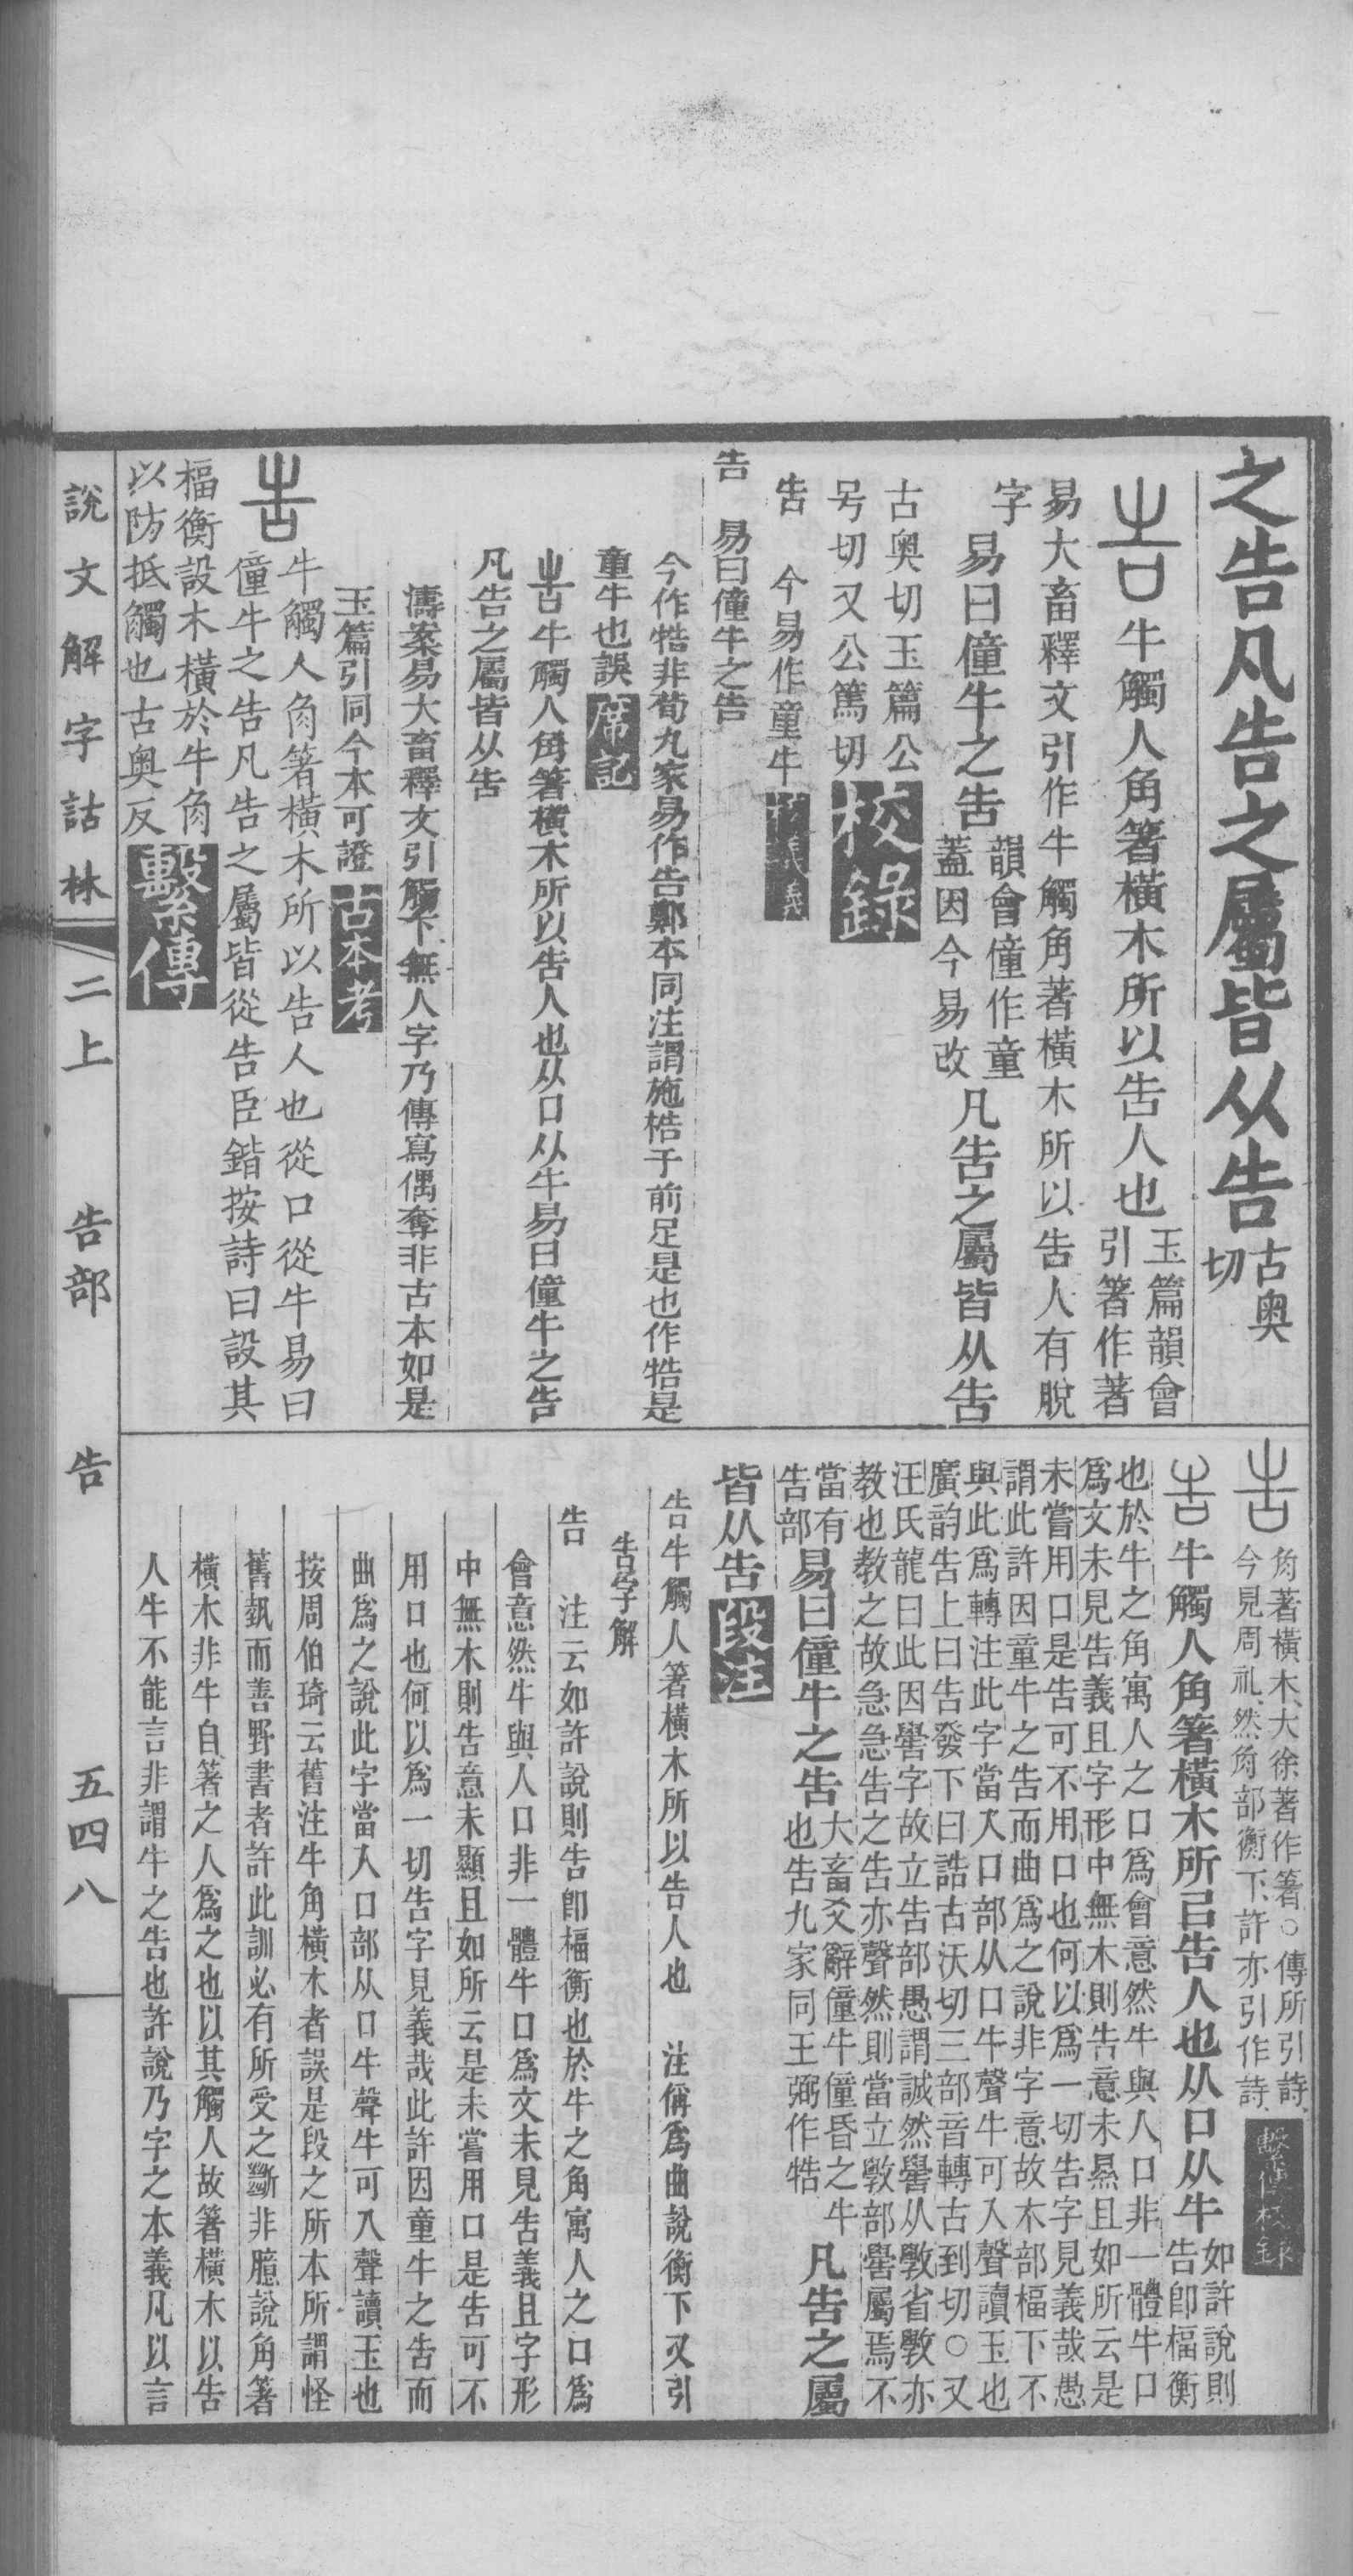 之告凡告之屬皆从告古奥切
告牛觸人角箸橫木所以告人也玉篇韻會引箸作著
易大畜釋文引作牛觸角著橫木所以告人有脫
字 易曰僮牛之告韻會僮作童蓋因今易改 凡告之屬皆从告
古奥切玉篇公
号切又公篤切 校錄
告 今易作童牛
告 易曰僮牛之告
今作牿非荀九家易作告鄭本同注謂施梏于前足是也作牿是
童牛也誤 席記
告牛觸人角箸橫木所以告人也从口从牛易曰僮牛之告
凡告之屬皆从告
濤案易大畜釋文引觸下無人字乃傳寫偶奪非古本如是
玉篇引同今本可證 古本考
告 牛觸人角著橫木所以告人也從口從牛易曰
僮牛之告凡告之屬皆從告臣鍇按詩曰設其
楅衡設木橫於牛角
以防抵觸也古奥反 繫傳
告 角著橫木大徐著作箸○傳所引詩
今見周礼然角部衡下許亦引作詩 繫傳校錄
告牛觸人角箸橫木所㠯告人也从口从牛如許說則告卽楅衡
也於牛之角寓人之口爲會意然牛與人口非一體牛口
爲文未見告義且字形中無木則告意未㬎且如所云是
未嘗用口是告可不用口也何以爲一切告字見義哉愚
謂此許因童牛之告而曲爲之說非字意故木部楅下不
與此爲轉注此字當入口部从口牛聲牛可入聲讀玉也
廣韵告上曰告發下曰誥古沃切三部音轉古到切○又
汪氏龍曰此因嚳字故立告部愚謂誠然嚳从斆省斆亦
教也教之故急急告之告亦聲然則當立斆部嚳屬焉不
當有告部 易曰僮牛之告大畜爻辭僮牛僮昏之牛也告九家同王弼作牿 凡告之屬
皆从告 段注
告牛觸人箸橫木所以告人也 注偁爲曲說衡下又引
告字解
告 注云如許說則告卽楅衡也於牛之角寓人之口爲
會意然牛與人口非一體牛口爲文未見告義且字形
中無木則告意未顯且如所云是未嘗用口是告可不
用口也何以爲一切告字見義哉此許因童牛之告而
曲爲之說此字當入口部从口牛聲牛可入聲讀玉也
按周伯琦云舊注牛角橫木者誤是段之所本所謂怪
舊埶而善野書者許此訓必有所受之斷非臆說角箸
橫木非牛自箸之人爲之也以其觸人故箸橫木以告
人牛不能言非謂牛之告也許說乃字之本義凡以言
說文解字詁林 二上 告部 告 五四八